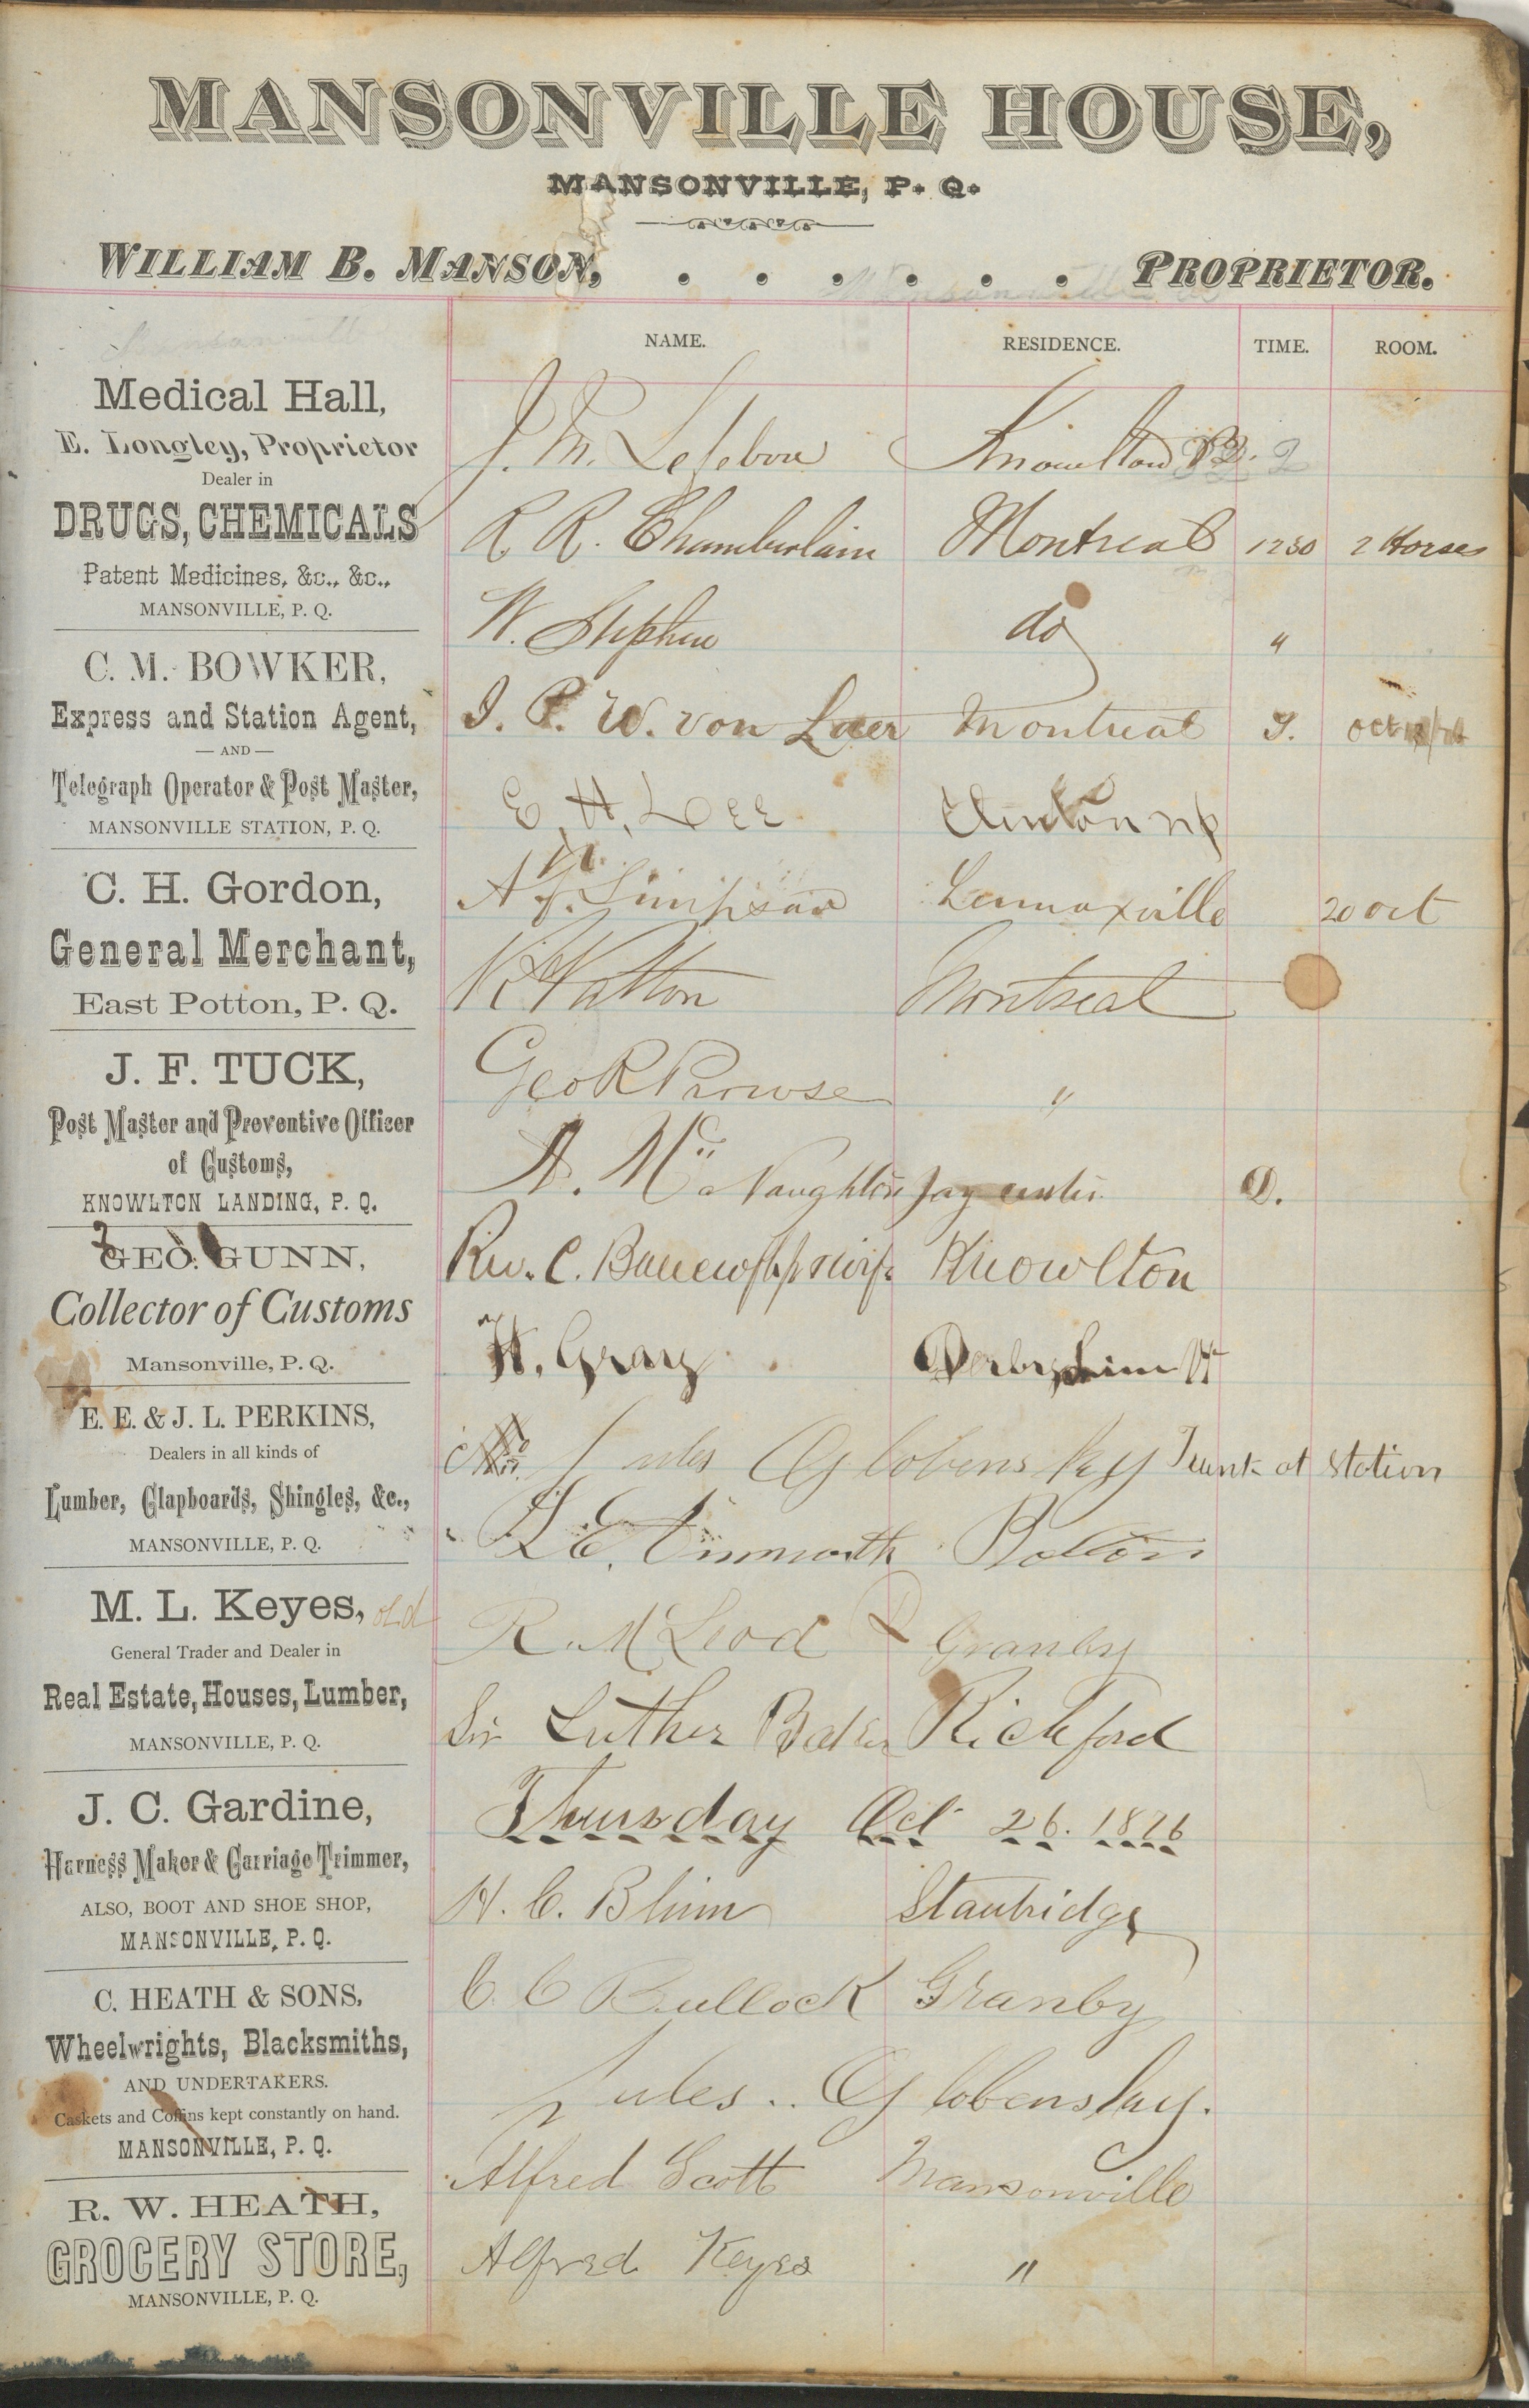 MANSONVILLE HOUSE,
MANSONVILLE, P. Q.
WILLIAM B. MANSON, . . . . . . PROPRIETOR.
NAME. RESIDENCE. TIME. ROOM.
Medical Hall,
E. Longley, Proprietor
Dealer in
DRUGS, CHEMICALS
Patent Medicines, &c., &c.,
MANSONVILLE, P. Q.
C. M. BOWKER,
Express and Station Agent,
— AND —
Telegraph Operator & Post Master,
MANSONVILLE STATION, P. Q.
C. H. Gordon,
General Merchant,
East Potton, P. Q.
J. F. TUCK,
Post Master and Preventive Officer
of Customs,
KNOWLTON LANDING, P. Q.
GEO. GUNN,
Collector of Customs
Mansonville, P. Q.
E. E. & J. L. PERKINS,
Dealers in all kinds of
Lumber, Clapboards, Shingles, &c.,
MANSONVILLE, P. Q.
M. L. Keyes, old
General Trader and Dealer in
Real Estate, Houses, Lumber,
MANSONVILLE, P. Q.
J. C. Gardine,
Harness Maker & Carriage Trimmer,
ALSO, BOOT AND SHOE SHOP,
MANSONVILLE, P. Q.
C. HEATH & SONS,
Wheelwrights, Blacksmiths,
AND UNDERTAKERS.
Caskets and Coffins kept constantly on hand.
MANSONVILLE, P. Q.
R. W. HEATH,
GROCERY STORE,
MANSONVILLE, P. Q.
J. M. Lefebvre Knowlton P.Q.
R R. Chamberlain Montreal 1230 2 Horses
W. Stephen do "
I. P. W. von Laer Montreal Oct
E. H. Lee Clinton
A Simpson Lennoxville 20 oct
Patton Montreal
Geo R Prowse "
A. Mc Naughton D.
Rev. C. Knowlton
H. Gray Derby Line Vt
Jules Globensky Trunk at station
Bolton
R. McLeod D Granby
Sir Luther Baker Richford
Thursday Oct 26. 1876
H. C. Blinn Stanbridge
C C Bullock Granby
Jules .. Globensky.
Alfred Scott Mansonville
Alfred Keyes "